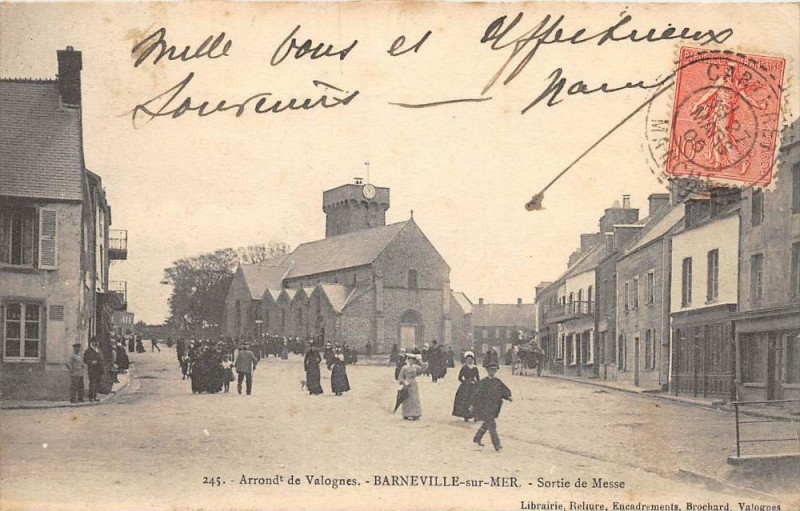 Mille bons et affectueux
souvenirs —
245. - Arrondt de Valognes. - BARNEVILLE-sur-MER. - Sortie de Messe
Librairie, Reliure, Encadrements, Brochard, Valognes